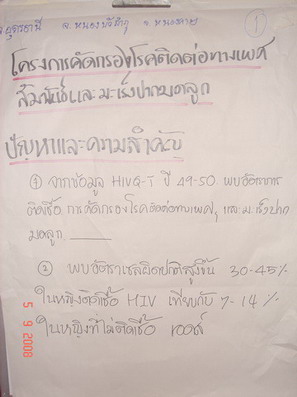 จ.อุดรธานี จ.หนองบัวลำภู จ.หนองคาย
1
โครงการคัดกรองโรคติดต่อทางเพศ
สัมพันธ์และมะเร็งปากมดลูก
ปัญหาและความสำคัญ
① จากข้อมูล HIVQ-T ปี 49-50 พบอัตราการ
ติดเชื้อ การคัดกรองโรคติดต่อทางเพศฯ และ ม. เร็งปาก
มดลูก
② พบอัตราเซลผิดปกติสูงขึ้น 30-45%
ในหญิงติดเชื้อ HIV เทียบกับ 7-14%
ในหญิงที่ไม่ติดเชื้อ เอดส์
5 9 2008